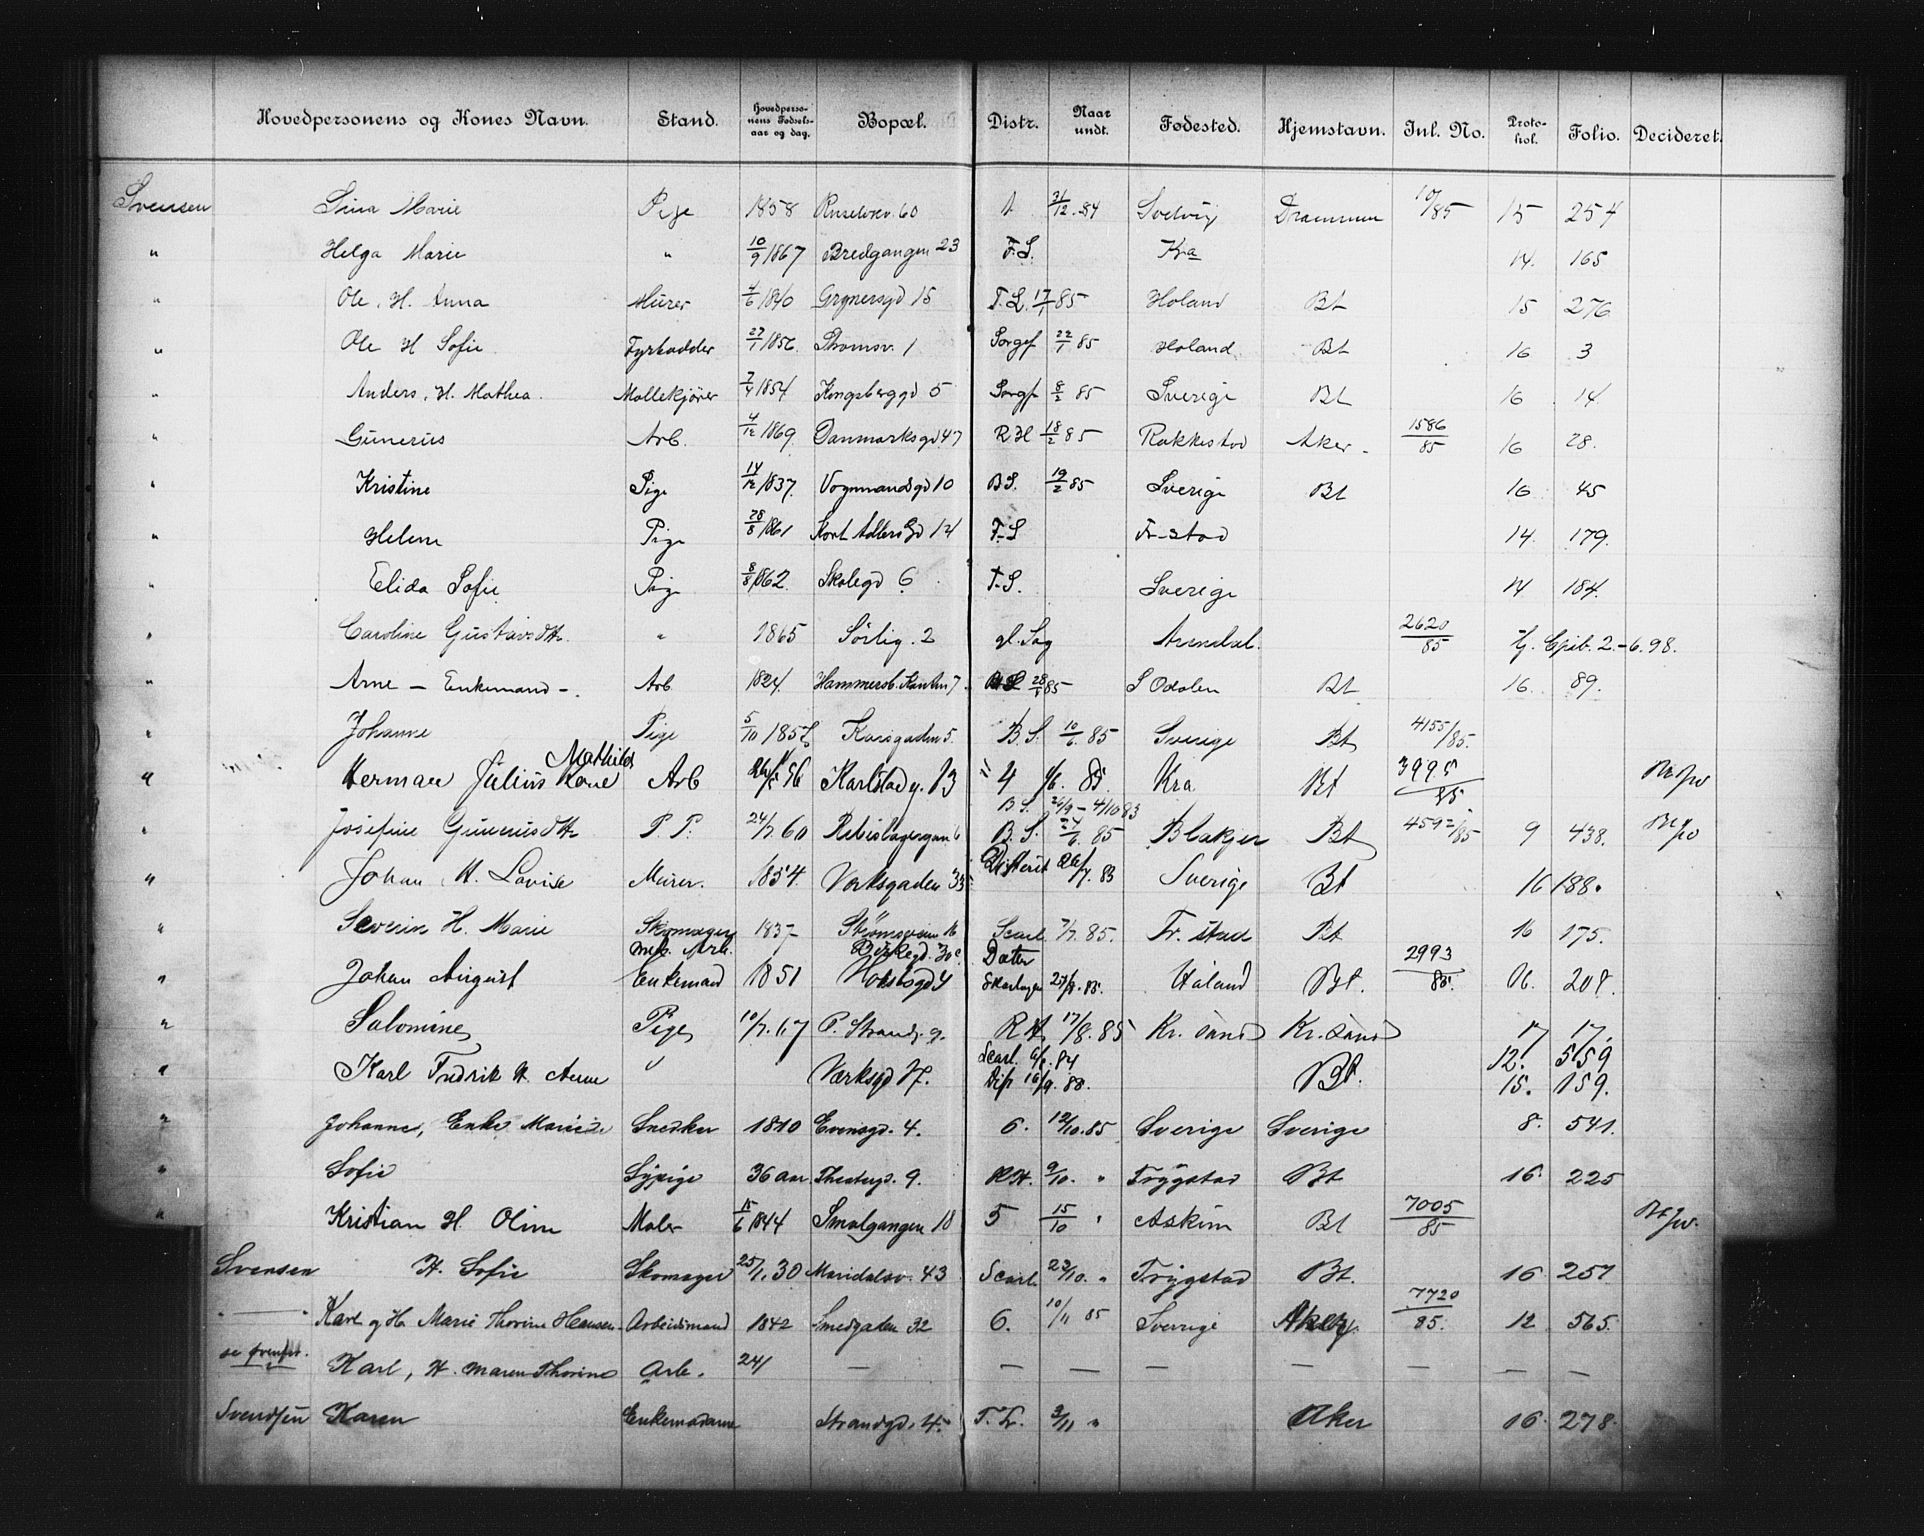 Hovedpersonens og Kones Navn. Stand. Hovedpersonens Fødselsaar og dag. Bopæl. Distr. Naar undt. Fødested. Hjemstavn. Inl. No. Protokol. Folio. Decideret.
Svensen Lina Marie Pige 1858 60 31/12 84 Svelvig Drammen 10/85 15 254
" Helga Marie " 10/9 1867 Bredgangen 23 F.S. Kra 14. 165
" Ole, H. Anna Murer 4/6 1840 Grønersgd 15 F.L. 17/1 85 Holand Bt 15 276
" Ole H Sofie Fyrbødder 27/1 1856 Stromsv. 1 Sorgf 22/1 85 Holand Bt 16 3
" Anders, H. Mathea. Møllekjører 7/4 1854 Kongsberggd 5 Sorgf 8/2 85 Sverige Bt 16 14
" Gunerius Arb. 4/12 1869 Danmarksgd 47 R.H 18/2 85 Rakkestad Aker - 1586/85 16 28.
" Kristine Pige 14/12 1837. Vognmandsgd 10 B.S. 19/2 85 Sverige Bt 16 45
" Helene Pige 28/8 1861 Kort Adlers Gd 14 F.S Fr-stad 14. 179.
" Elida Sofie Pige 8/8 1862. Skolegd 6 F.S. Sverige 14 184.
" Caroline Gustavsdtr. " 1865 Sörlig. 2 gl. Sag Arendal. 2620/85 2.-6.98.
" Arne - Enkemand -. Arb 1824. Hammersb. Kanten 7. 28/ 85 S Odalen Bt 16. 89.
" Johanne Pige 5/10 185 Korsgaden 5. B.S. 10/6. 85 Sverige Bt 4155/85.
Mathilde
" Herman Julius Kone Arb 56 Karlstadg. 13 4 /6. 85. Kra Bt 3995/85
B.S. 26/9 - 4/10 83
" Josefine Gunerusdtr P.P. 24/7 60 B.S. 24/6. 85 Blakjer Bt 4592/85 9 438.
" Johan H. Lovise Murer. 1854. Værksgaden 33 Disteret 26/7. 83 Sverige Bt 16 188.
" Severin H. Marie Skomager 1837 Strømsveien 16 Scarl. 7/7. 85. Fr. stad Bt 16 175.
mek. Arb. Birkegd. 30c Dater 2993
" Johan August Enkemand 1851 Holstsgd 4 Skarlagen 27/8. 85. Høland Bt. 85. 16. 208.
" Salomine Pige 10/7. 67 P. Strandg. 9. R H 17/8. 85 Kr. sand Kr. sand 17 17.
Scarl. 6/ 84 12. 559
" Karl Fredrik H. Anne " Værksgd 17. Dif 16/9. 88. Bt. 15. 159.
" Johannes, Enke Marie Snedker 1810 Evensgd. 4. 6. 12/10. 85 Sverige Sverige 8. 541.
" Sofie Sypige 36 aar. Thesteg. 9. R.H. 9/10. " Trygstad Bt 16. 225
" Kristian H. Oline Maler 15/6 1844 Smalgangen 18 5 15/10 " Askim Bt 7005/85
Svensen H. Sofie Skomager 25/1. 30 Maridalsv. 43 Scarl. 22/10. " Trygstad Bt. 16 257
" — " Karl og H. Marie Thorine Hansen. Arbeidsmand 1842 Smedgaden 32 6. 10/11 85 Sverige Aker 7720/85. 12 565.
se Karl, H. Maren Thorine Arb. 24/ — — — — — — — —
Svendsen Karen Enkemadame Strandgd. 4. T.Tr. 3/11 " Aker 16. 278.